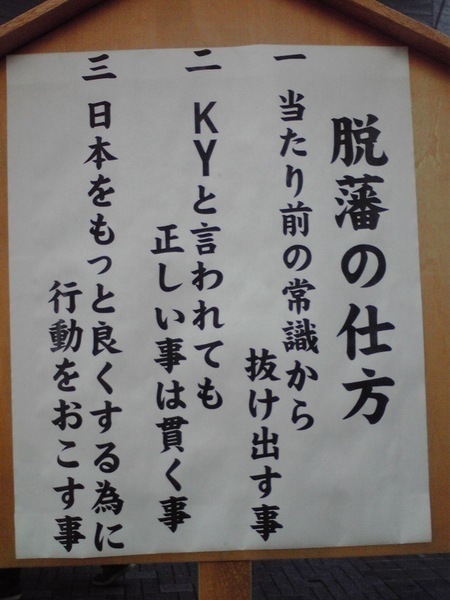 脱藩の仕方
一 当たり前の常識から
抜け出す事
二 KYと言われても
正しい事は貫く事
三 日本をもっと良くする為に
行動をおこす事